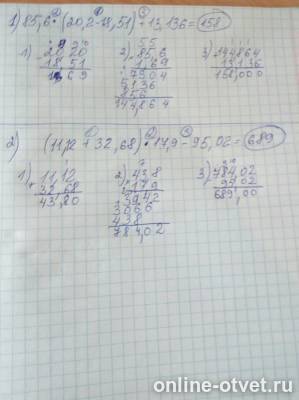 1) 85,6 · (20,2 - 18,51) + 13,136 = 158
1) 20,20 2) 85,6 3) 144,864
18,51 1,69 13,136
1,69 7704 158,000
5136
856
144,864
2) (11,12 + 32,68) · 17,9 - 95,02 = 689
1) 11,12 2) 43,8 3) 784,02
32,68 17,9 95,02
43,80 3942 689,00
3066
438
784,02
online-otvet.ru